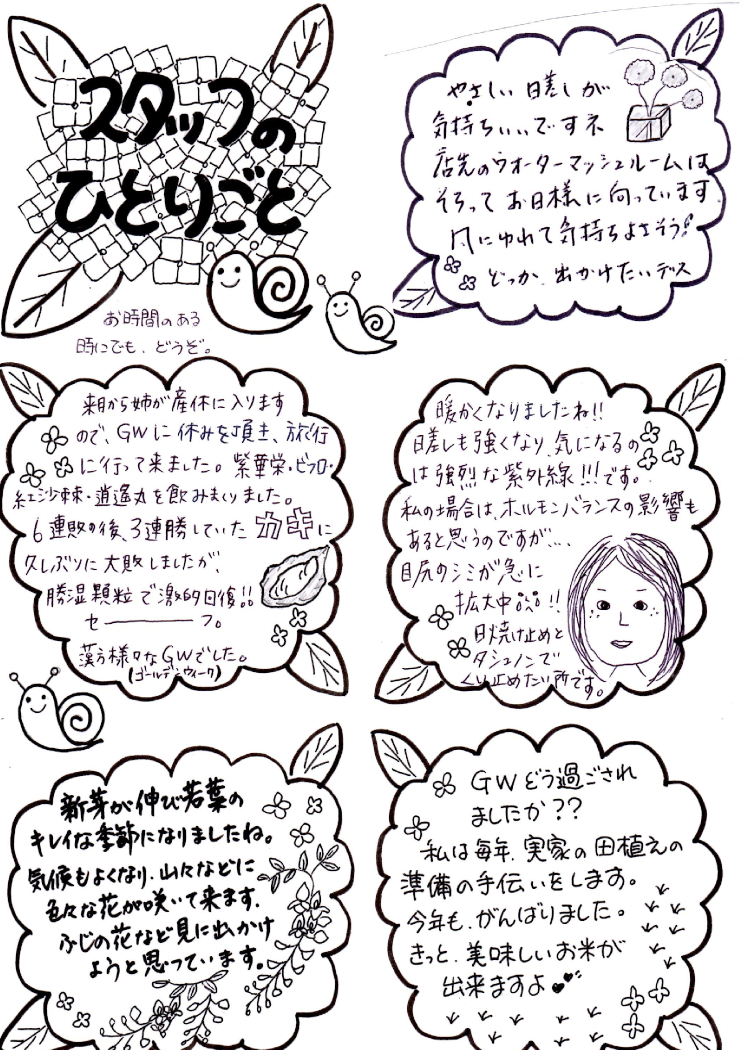 スタッフの
ひとりごと
お時間のある
時にでも、どうぞ。
やさしい 日差しが
気持ちいいですネ
店先のウォーターマッシュルームは
そろって お日様に向っています
風にゆれて気持ちよさそう!
どっか、出かけたいデス
来月から姉が産休に入ります
ので、GWに休みを頂き、旅行
に行って来ました。紫華栄・ビフロ・
紅沙棘・逍遥丸を飲みまくりました。
6連敗の後、3連勝していたカキに
久しぶりに大敗しましたが、
勝湿顆粒で激的回復!!
セーーーフ。
漢方様々なGWでした。
(ゴールデンウィーク)
暖かくなりましたね!!
日差しも強くなり、気になるの
は強烈な紫外線!!!です。
私の場合は、ホルモンバランスの影響も
あると思うのですが...
目尻のシミが急に
拡大中!!
日焼け止めと
タシュノンで
くい止めたい所です。
新芽が伸び若葉の
キレイな季節になりましたね。
気候もよくなり、山々などに
色々な花が咲いて来ます。
ふじの花など見に出かけ
ようと思っています。
GWどう過ごされ
ましたか??
私は毎年、実家の田植えの
準備の手伝いをします。
今年も、がんばりました。
きっと、美味しいお米が
出来ますよ